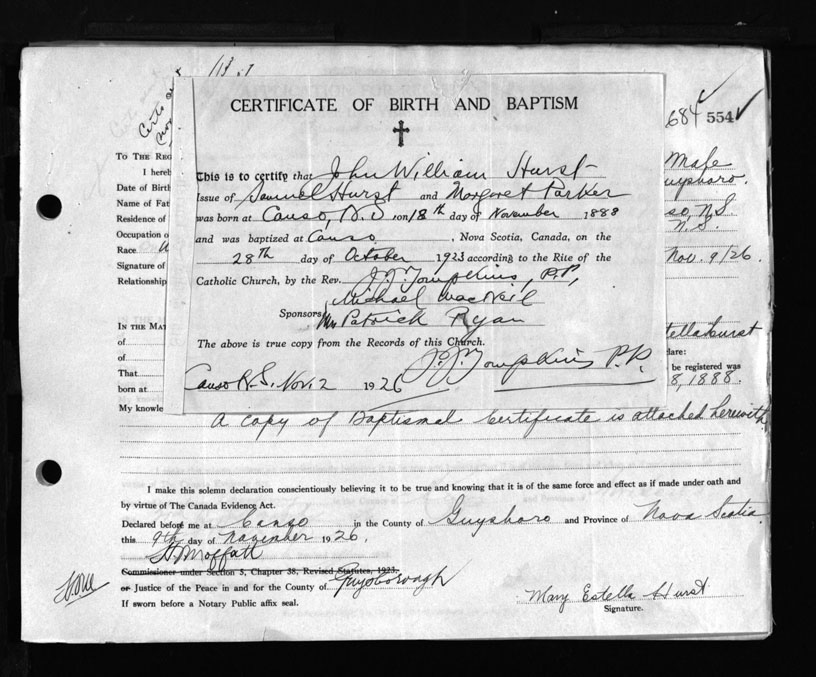 684 554
CERTIFICATE OF BIRTH AND BAPTISM
This is to certify that John William Hurst
Issue of Samuel Hurst and Margaret Parker
was born at Canso, N.S on 18th day of November 1888
and was baptized at Canso, Nova Scotia, Canada, on the
28th day of October 1923 according to the Rite of the
Catholic Church, by the Rev. J.J. Tompkins, P.P.,
Sponsors Michael MacNeil
Mrs Patrick Ryan
The above is true copy from the Records of this Church.
J.J. Tompkins P.P.
Canso N.S. Nov. 2 1926
TO THE REG
I hereb
Date of Birth
Name of Fat
Residence of
Occupation o
Race
Signature of
Relationship
Male
uysboro.
so, N.S.
N.S.
Nov. 9/26.
IN THE MAT
of
of
That
born at
My knowle
tella Hurst
lare:
be registered was
8, 1888.
A copy of Baptismal Certificate is attached herewith
I make this solemn declaration conscientiously believing it to be true and knowing that it is of the same force and effect as if made under oath and
by virtue of The Canada Evidence Act.
Declared before me at Canso in the County of Guysboro and Province of Nova Scotia.
this 9th day of November 1926.
Moffatt
Commissioner under Section 5, Chapter 38, Revised Statutes, 1923.
or Justice of the Peace in and for the County of Guysborough
If sworn before a Notary Public affix seal.
Mary Estella Hurst
Signature.